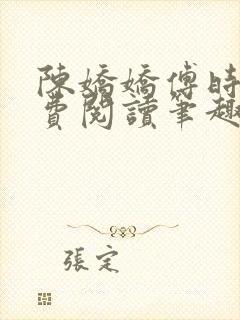 陳嬌嬌傅時
費閱讀筆趣
張定